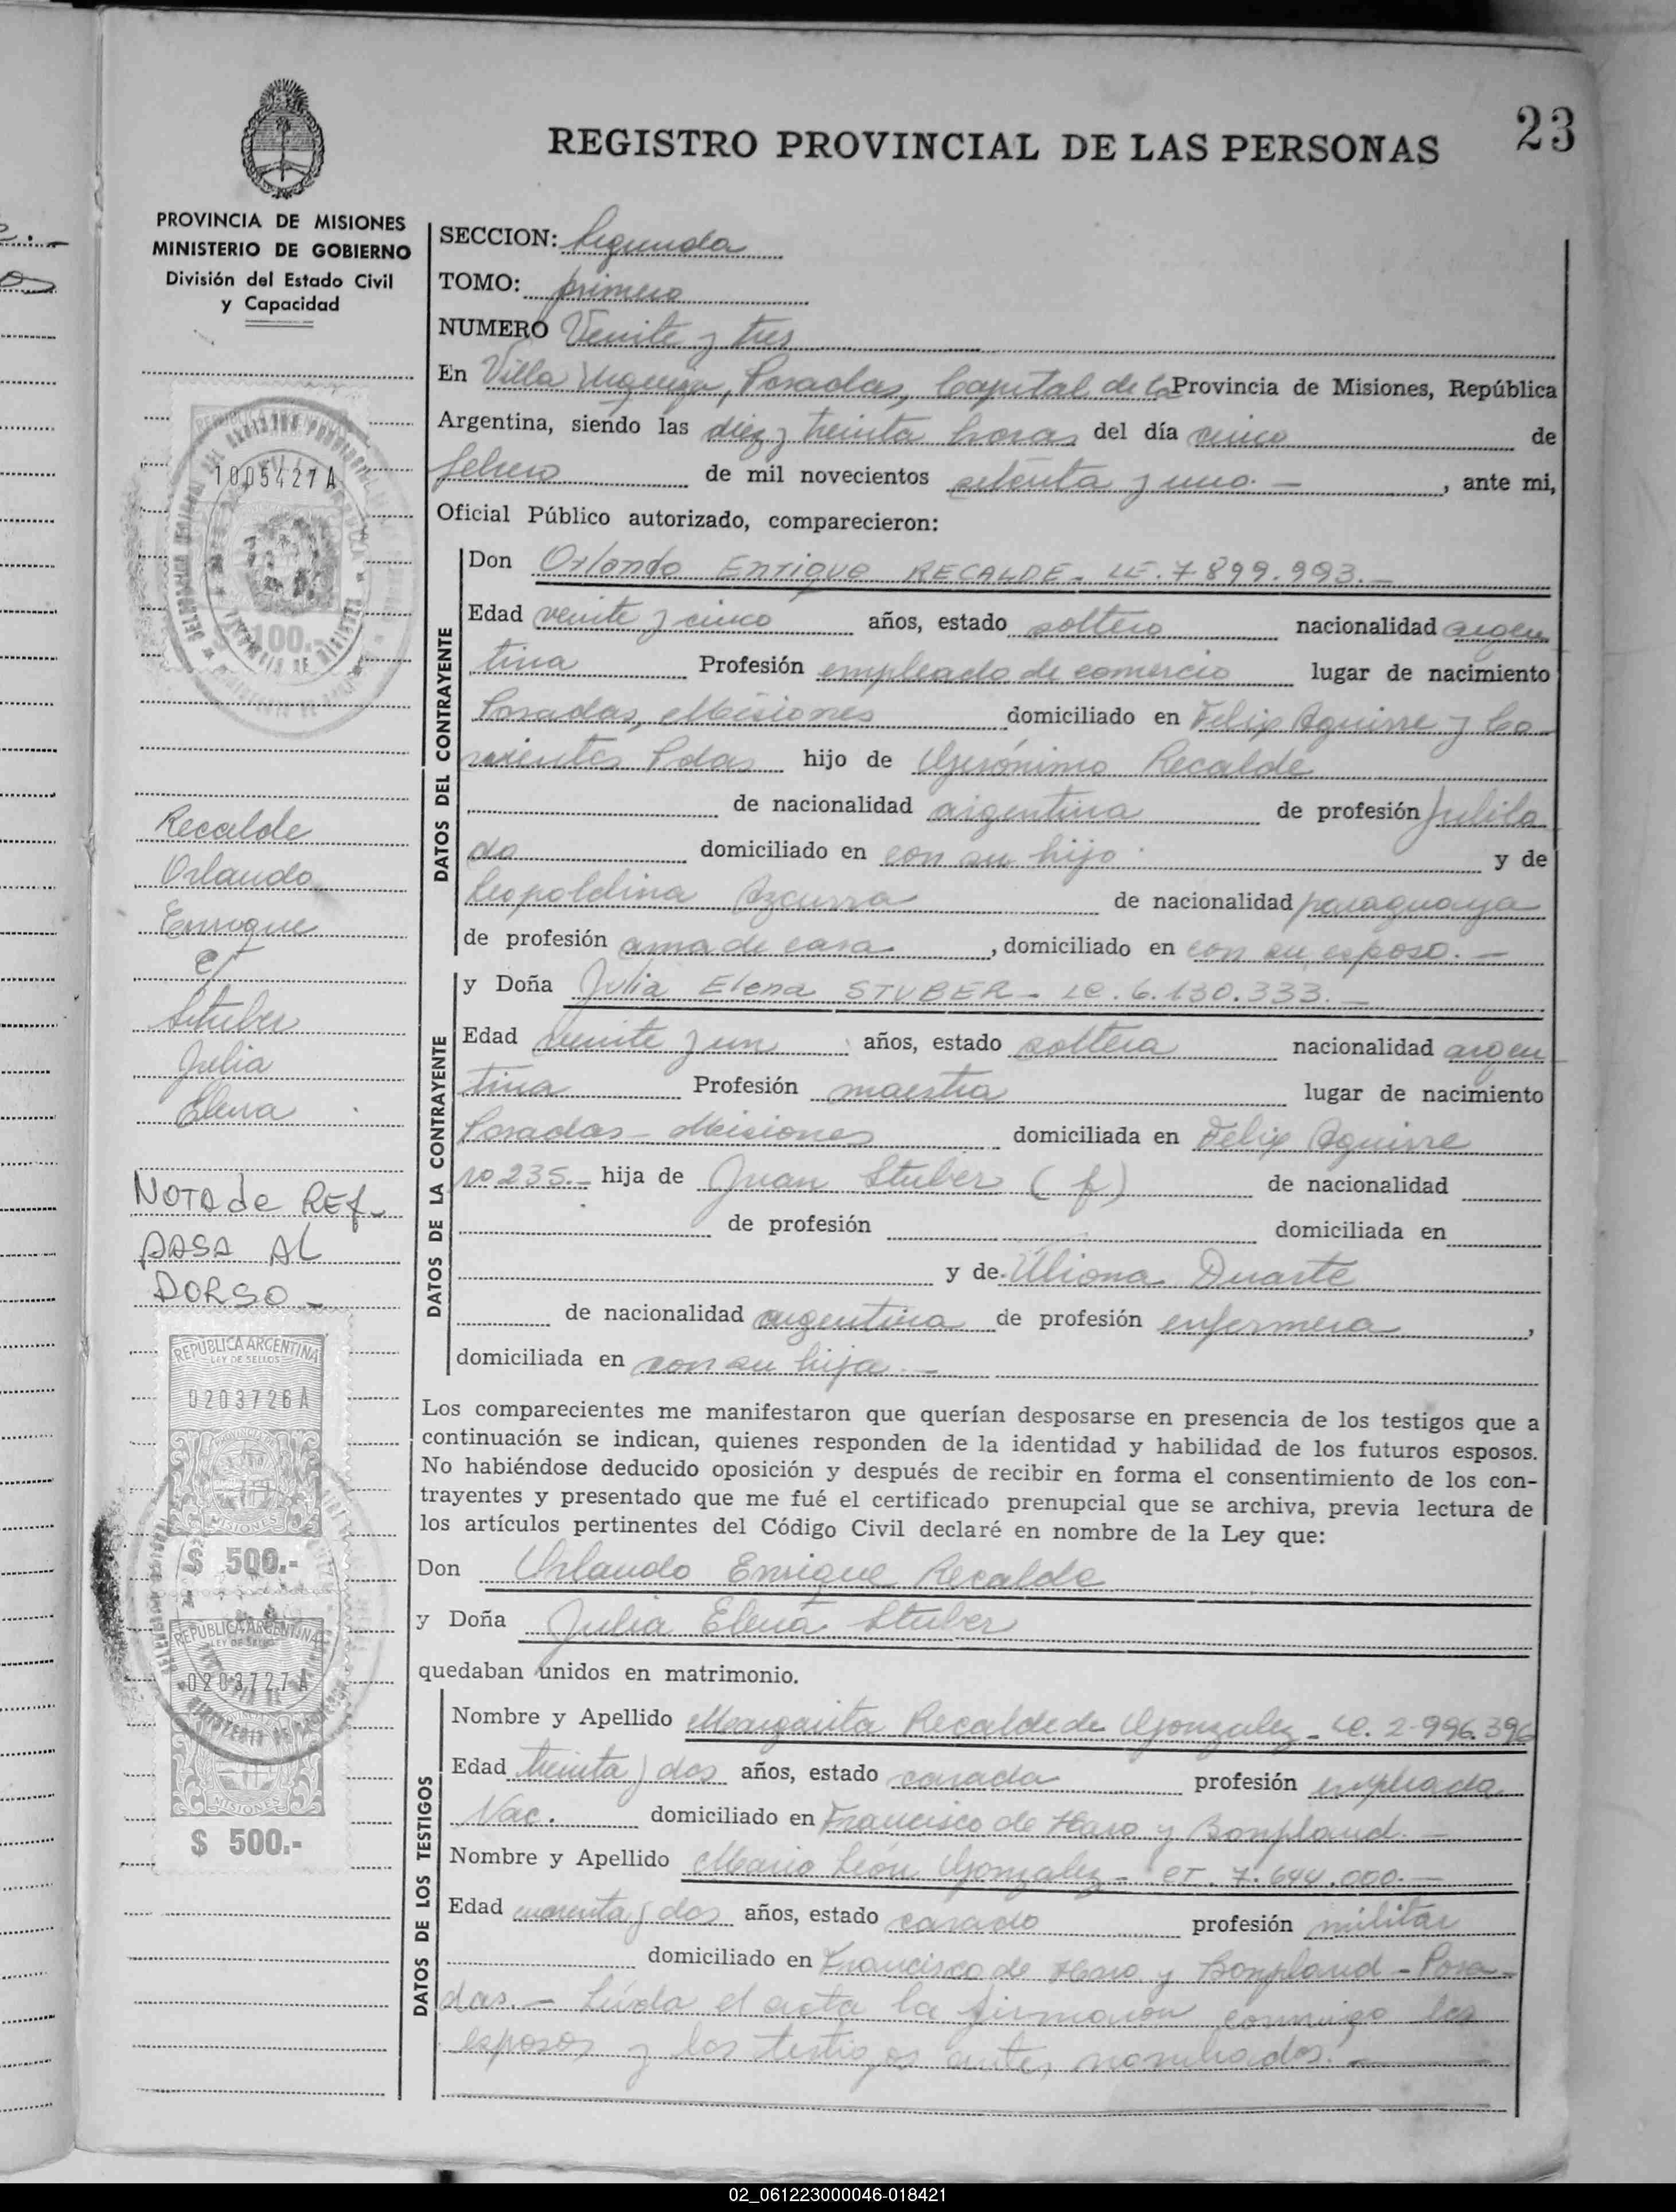 23
REGISTRO PROVINCIAL DE LAS PERSONAS
PROVINCIA DE MISIONES
MINISTERIO DE GOBIERNO
División del Estado Civil
y Capacidad
SECCION: Segunda
TOMO: primero
NUMERO Veinte y tres
En Villa Urquiza, Posadas, Capital de la Provincia de Misiones, República
Argentina, siendo las diez y treinta horas del día cinco de
febrero de mil novecientos setenta y uno. — , ante mi,
Oficial Público autorizado, comparecieron:
DATOS DEL CONTRAYENTE
Don Orlando Enrique RECALDE - LE. 7899.993. —
Edad veinte y cinco años, estado soltero nacionalidad argen
tina Profesión empleado de comercio lugar de nacimiento
Posadas, Misiones domiciliado en Felix Aguirre y Co
rrientes Pdas hijo de Gerónimo Recalde
de nacionalidad argentina de profesión Jubila
do domiciliado en con su hijo y de
Leopoldina Azcurra de nacionalidad paraguaya
de profesión ama de casa , domiciliado en con su esposo. —
DATOS DE LA CONTRAYENTE
y Doña Julia Elena STUBER - LC. 6.130.333. —
Edad veinte y un años, estado soltera nacionalidad argen
tina Profesión maestra lugar de nacimiento
Posadas - Misiones domiciliada en Felix Aguirre
no 235. - hija de Juan Stuber (f) de nacionalidad
de profesión domiciliada en
y de Duarte
de nacionalidad argentina de profesión enfermera ,
domiciliada en con su hija. —
Los comparecientes me manifestaron que querían desposarse en presencia de los testigos que a
continuación se indican, quienes responden de la identidad y habilidad de los futuros esposos.
No habiéndose deducido oposición y después de recibir en forma el consentimiento de los con-
trayentes y presentado que me fué el certificado prenupcial que se archiva, previa lectura de
los artículos pertinentes del Código Civil declaré en nombre de la Ley que:
Don Orlando Enrique Recalde
y Doña Julia Elena Stuber
quedaban unidos en matrimonio.
DATOS DE LOS TESTIGOS
Nombre y Apellido Margarita Recalde de Gonzalez - LC. 2.996.396
Edad treinta y dos años, estado casada profesión empleada
Nac. domiciliado en Francisco de Haro y Bonpland. —
Nombre y Apellido Mario León Gonzalez - 7.644.000. —
Edad cuarenta y dos años, estado casado profesión militar
domiciliado en Francisco de Haro y Bonpland - Posa-
das. - Leída el acta la firmaron conmigo los
esposos y los testigos antes nombrados. —
1005427A
100.-
Recalde
Orlando
Enrique
c/
Stuber
Julia
Elena
NOTA de REF.
PASA AL
DORSO -
REPUBLICA ARGENTINA
LEY DE SELLOS
0203726A
MISIONES
$ 500.-
REPUBLICA ARGENTINA
LEY DE SELLOS
0203727A
MISIONES
$ 500.-
02_061223000046-018421